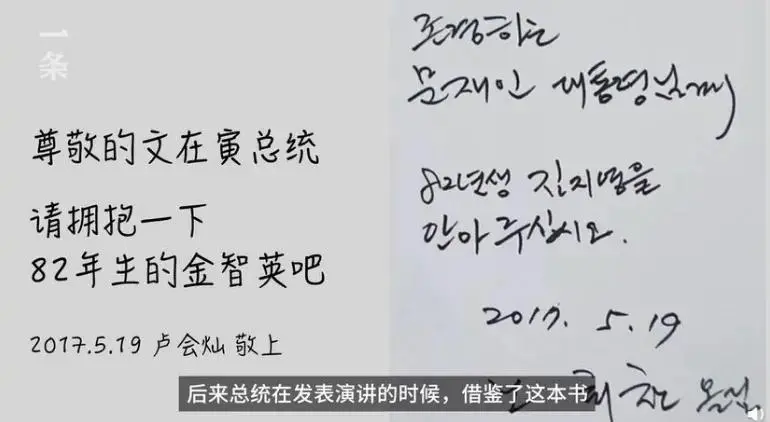 一条
尊敬的文在寅总统
请拥抱一下
82年生的金智英吧
2017.5.19 卢会灿 敬上
존경하는
문재인 대통령님께
82년생 김지영을
안아 주십시오.
2017. 5.19
노 회찬 올림
后来总统在发表演讲的时候，借鉴了这本书